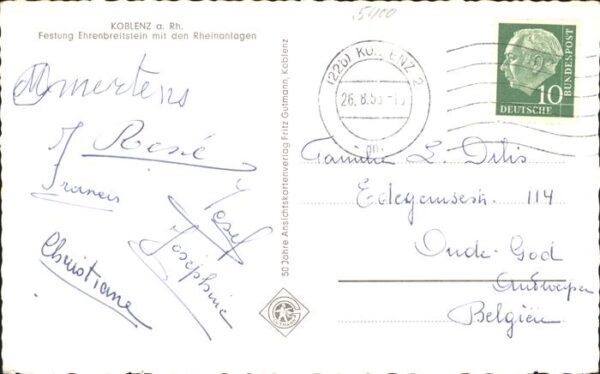 KOBLENZ a. Rh.
Festung Ehrenbreitstein mit den Rheinanlagen
Mertens
René
Francis
Josef
Joséphine
Christiane
50 Jahre Ansichtskartenverlag Fritz Gutmann, Koblenz
(22b) KOBLENZ 2
26. 8. 55
10
DEUTSCHE
BUNDESPOST
Familie L. Dilis
114
Oude-God
Antwerpen
Belgien